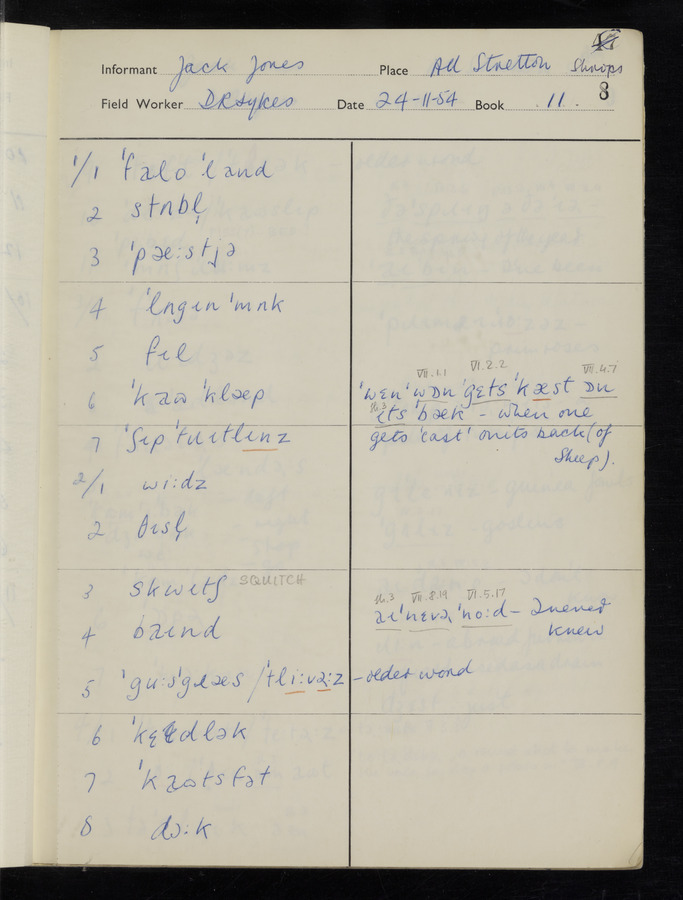 47
Informant Jack Jones Place All Stretton Shrops
Field Worker DRSykes Date 24-11-54 Book 11. 8
1/1 ˈfalo ˈland
2 stɒbl̩
3 ˈpæ:stjə
4 ˈlɒgɪn ˈmɒk
5 fɪl
6 ˈklæp
7 ˈʃɪp ˈtɪtlɪnz
2/1 wi:dz
2 θɪsl̩
3 skwɪtʃ SQUITCH
4 baɪnd
5 ˈgu:sˈgɹæs / tli:vəːz – older word
6 ˈkɛdlək
7 ˈkaʊtsfət
8 dɔ:k
VII.1.1 VI.2.2 VII.4.7
ˈwɛn ˈwɒn ˈgɛts ˈkæst ɒn
th.3
ɪts ˈbæk – when one
gets 'cast' on its back (of
Sheep).
th.3 VII.8.19 VI.5.17
aɪ ˈnɛvə ˈno:d – I never
knew